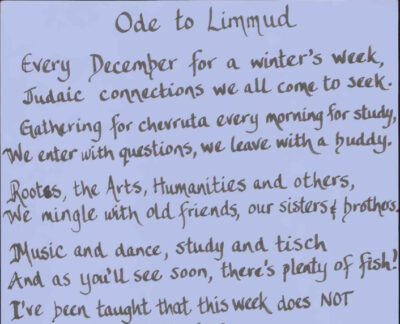 Ode to Limmud
Every December for a winter's week,
Judaic connections we all come to seek.
Gathering for chevruta every morning for study,
We enter with questions, we leave with a buddy.
Roots, the Arts, Humanities and others,
We mingle with old friends, our sisters & brothers.
Music and dance, study and tisch
And as you'll see soon, there's plenty of fish!
I've been taught that this week does NOT